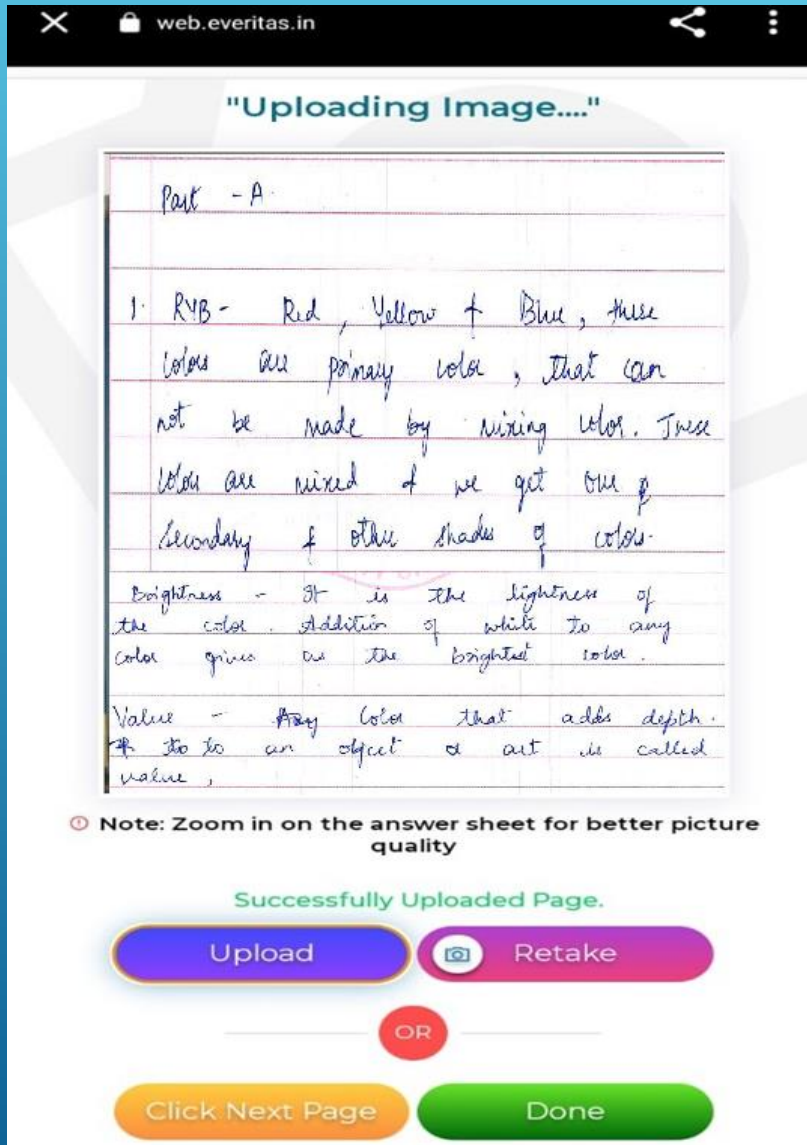 web.everitas.in
"Uploading Image...."
Part - A.
1. RYB - Red, Yellow & Blue, these
colors are primary color, that can
not be made by mixing color. These
colors are mixed & we get our
secondary & other shades of colors.
Brightness - It is the lightness of
the color. Addition of white to any
color gives us the brightest color.
Value - Any Color that adds depth.
to to an object or art is called
value,
Note: Zoom in on the answer sheet for better picture
quality
Successfully Uploaded Page.
Upload
Retake
OR
Click Next Page
Done